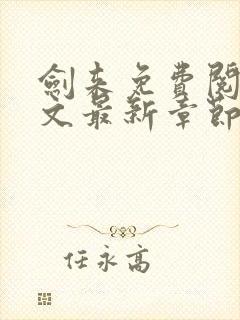 劍来免費閱
文最新章節
任永高